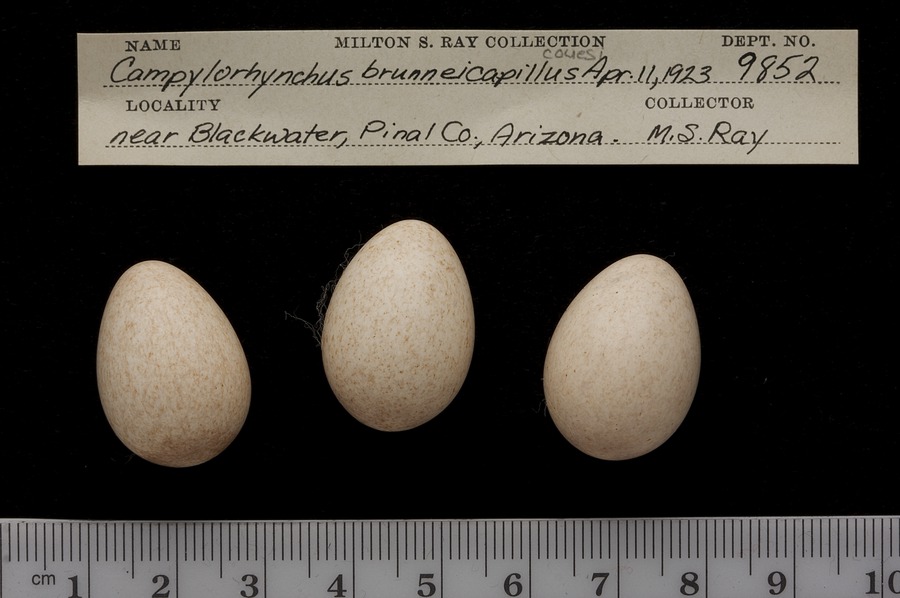 NAME MILTON S. RAY COLLECTION DEPT. NO.
couesi
Campylorhynchus brunneicapillus Apr. 11, 1923 9852
LOCALITY COLLECTOR
near Blackwater, Pinal Co., Arizona. M.S. Ray
cm 1 2 3 4 5 6 7 8 9 10